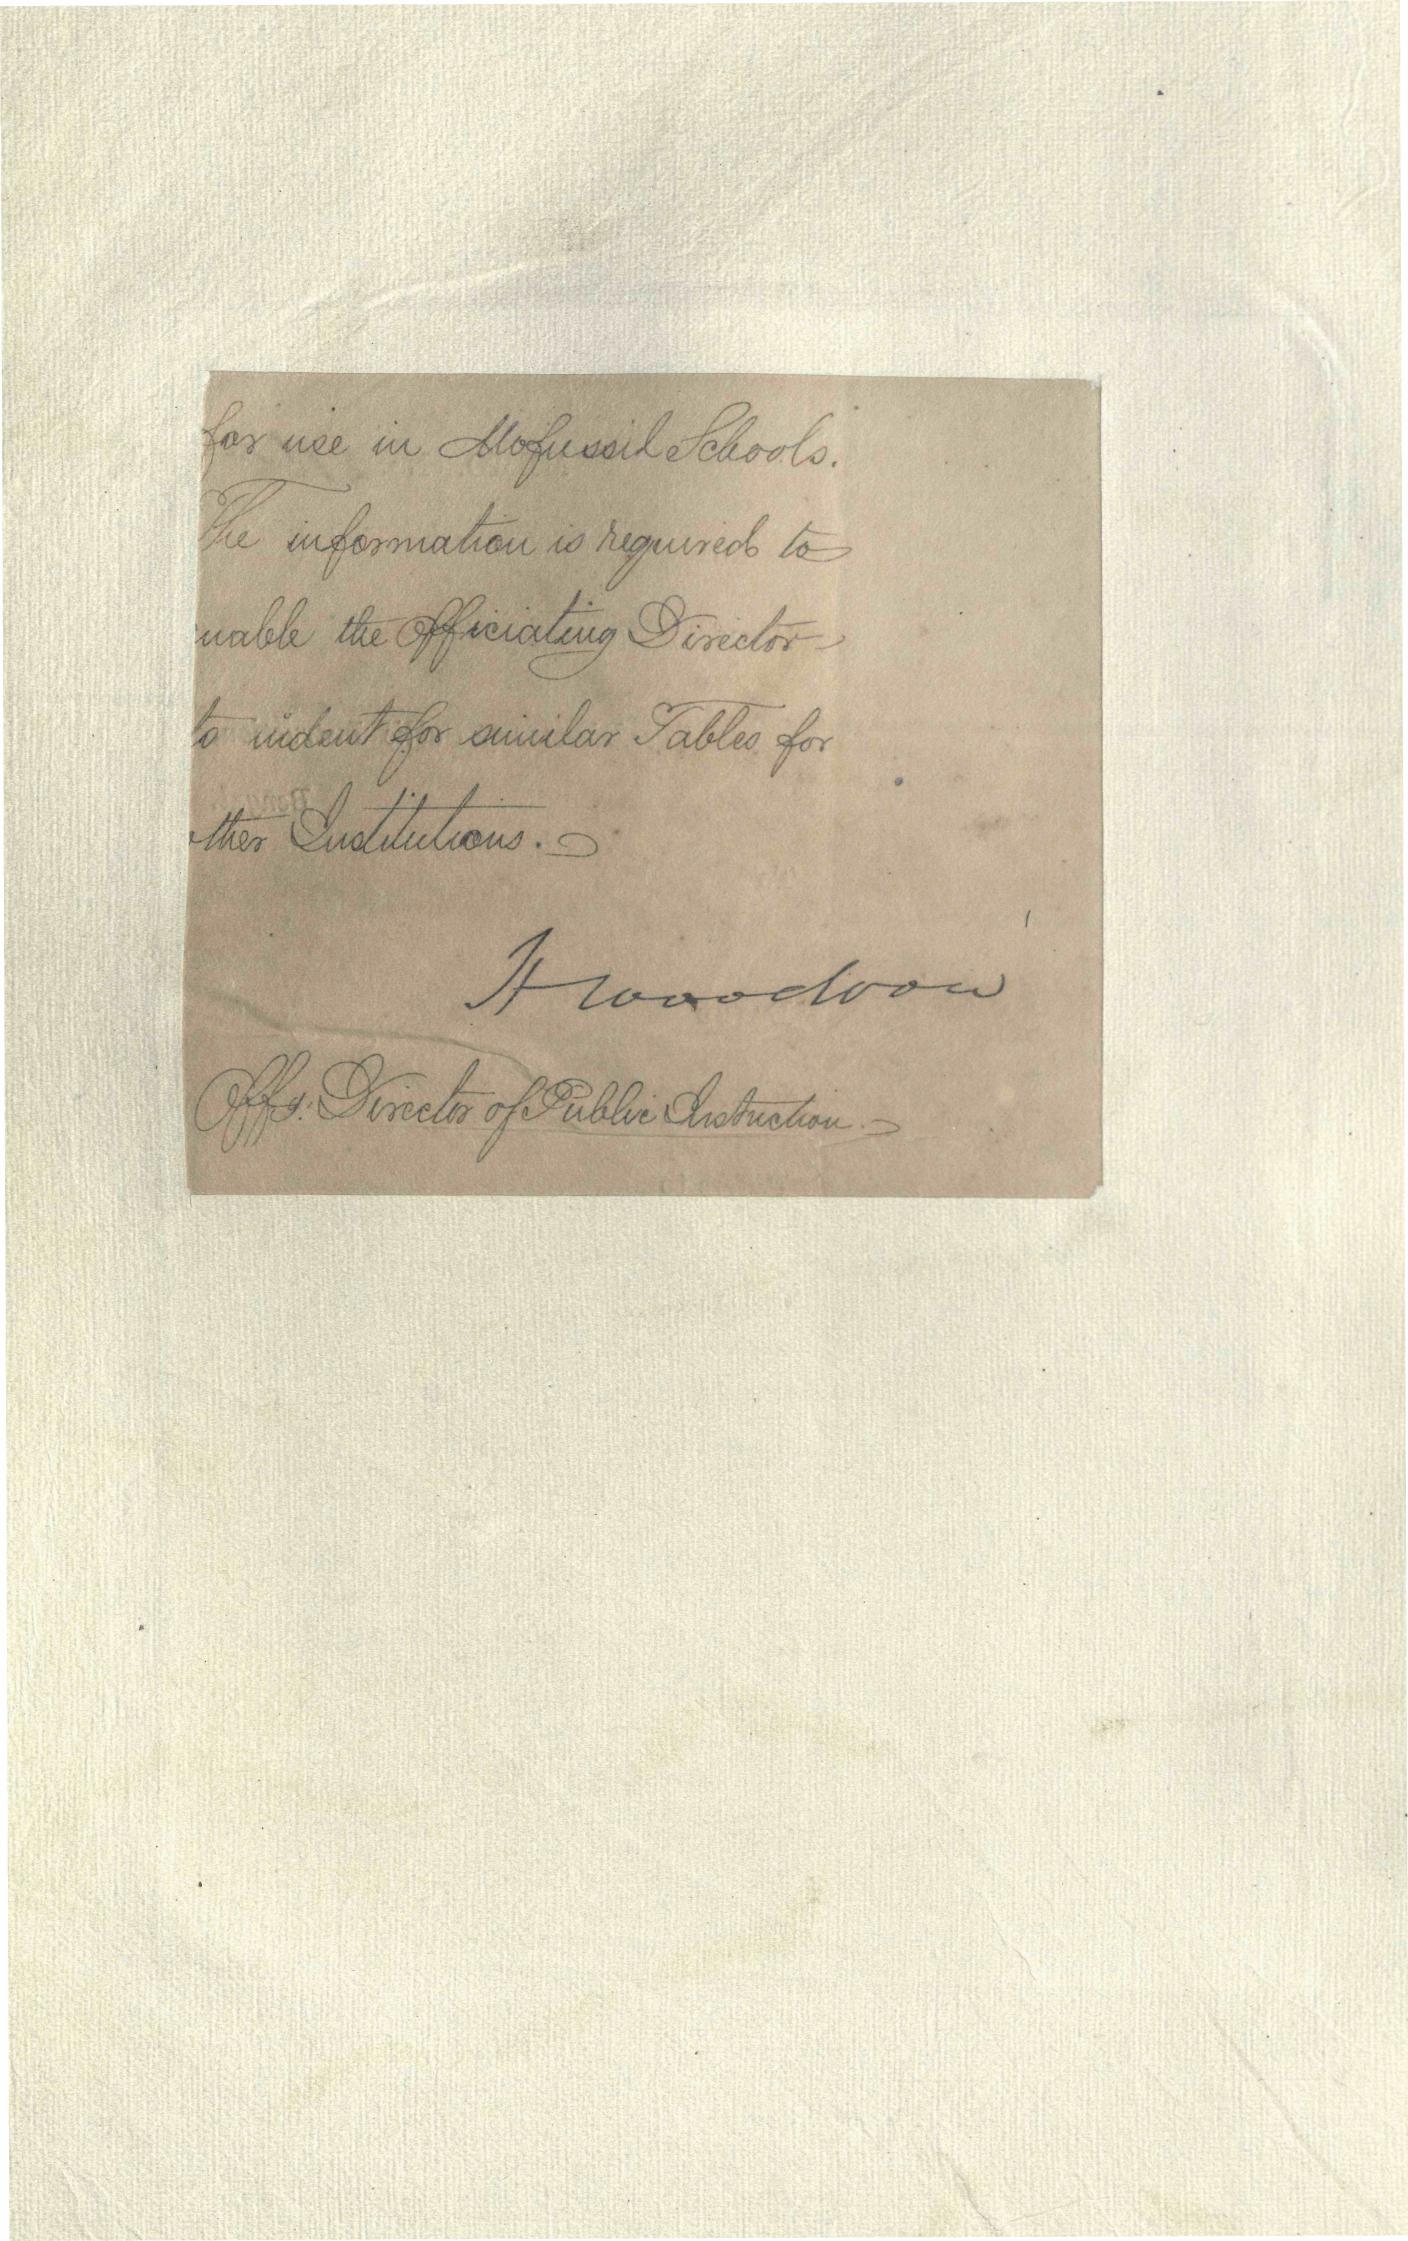 for use in Mofussil Schools.
The information is required to
nable the Officiating Director
to indent for similar Tables for
other Institutions.
H Woodrow
Offg. Director of Public Instruction.